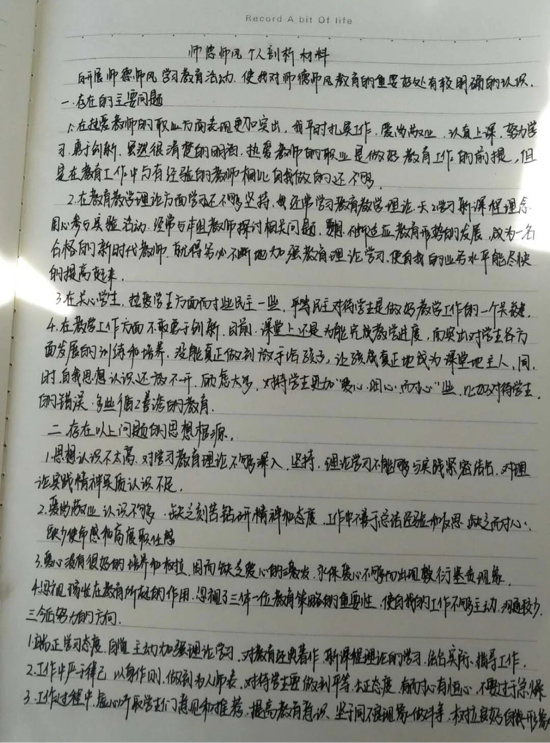 Record A bit Of life
师德师风个人剖析材料
开展师德师风学习教育活动,使我对师德师风教育的重要好处有较明确的认识。
一.存在的主要问题
1.在热爱教师的职业方面表现更加突出,我平时扎实工作,爱岗敬业,认真上课,努力学
习,勇于创新。虽然很清楚的明白,热爱教师的职业是做好教育工作的前提,但
是在教育工作中与有经验的教师相比自我做的还不够。
2.在教育教学理论方面学习还不够坚持,我还常学习教育教学理论,学习新课程理念
用心参与实验活动,经常与本组教师探讨相关问题,要想适应教育形势的发展,成为一名
合格的新时代教师,就得努力不断地加强教育理论学习,使自我的业务水平能尽快
的提高起来。
3.在关心学生,热爱学生方面应才些民主一些,平等民主对待学生是做好教学工作的一个关键。
4.在教学工作方面不敢勇于创新,目前,课堂上还是为能完成教学进度,而突出对学生各方
面发展的训练和培养,没能真正做到放手给孩子,让孩成真正地成为课堂地主人,同
时,自我思想认识还放不开,励志大多,对待学生更加"爱心、细心、耐心"些,比如对待学生
的错误,多些循循善诱的教育。
二.存在以上问题的思想根源.
1.思想认识不太高,对学习教育理论不够深入、坚持,理论学习不能够与实践紧密结合,对理
论实践精神实质认识不足.
2.爱岗敬业认识不够,缺乏刻苦钻研精神和态度,工作中不善于总结经验和反思,缺乏耐心,
缺少使命感和高度职任感
3.爱心没有很好的培养和树立,因而缺乏爱心的激发,永保爱心不够,出现敷衍塞责现象.
4.忽视 在教育所起的作用,忽视了三位一体教育策略的重要性,使自我的工作不够主动,沟通较少.
三.今后努力的方向.
1.端正学习态度,自觉主动加强理论学习,对教育经典著作、新课程理论的学习,结合实际,指导工作.
2.工作中严于律己,以身作则,做到为人师表,对待学生要做到平等、 态度,有耐心有恒心,不要过于急躁
3.工作过程中,虚心听取学生们意见和推荐,提高教育意识, 做好 ,树立良好自我形象